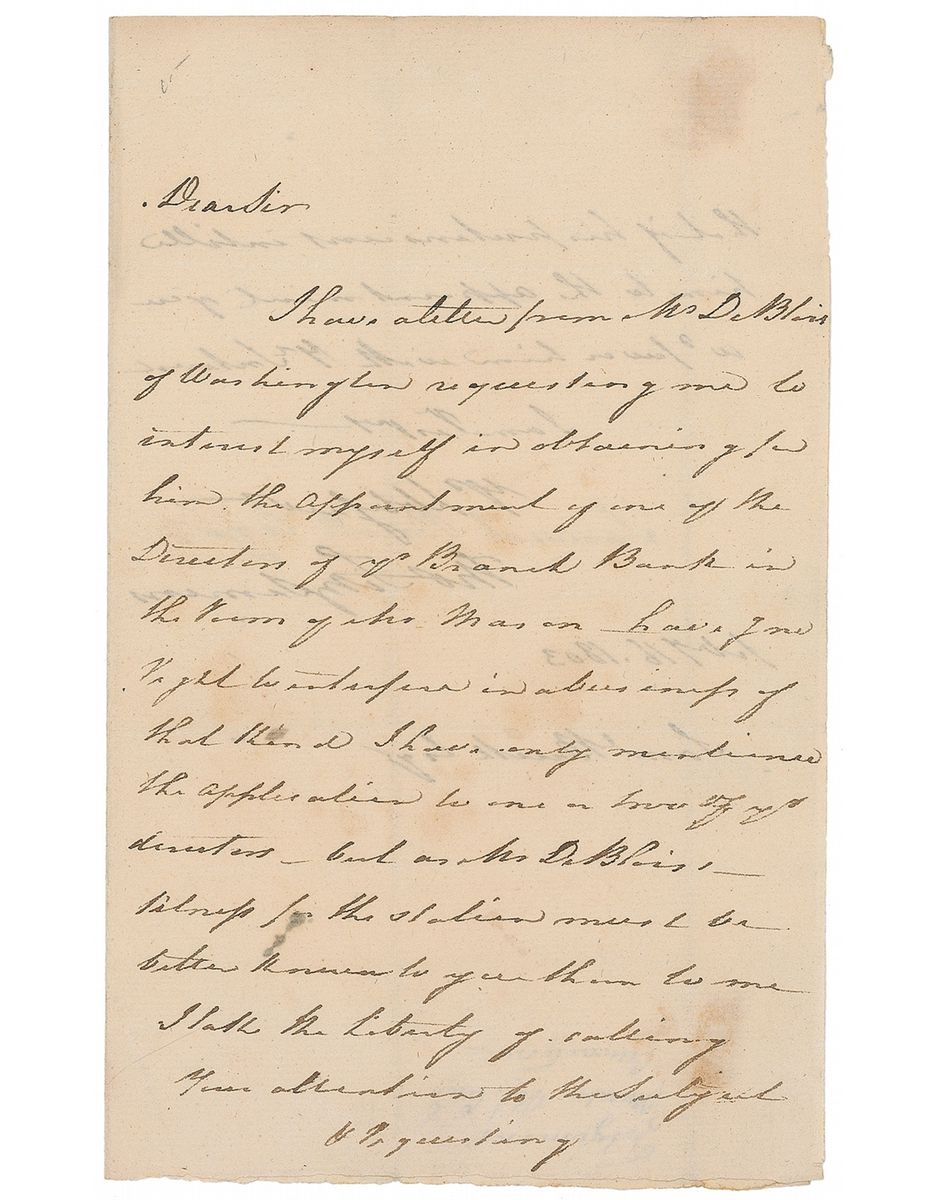 Dear Sir
I have a letter from Mr DeBlois
of Washington requesting me to
interest myself in obtaining for
him the appointment of one of the
Directors of ye Branch Bank in
the room of Mr Mason have of no
Right to interfere in a business of
that Kind I have only mentioned
the application to one or two of ye
directors – but as Mr DeBlois –
fitness for the station must be
better known to you than to me
I take the liberty of calling
Your attention to the Subject
& requesting